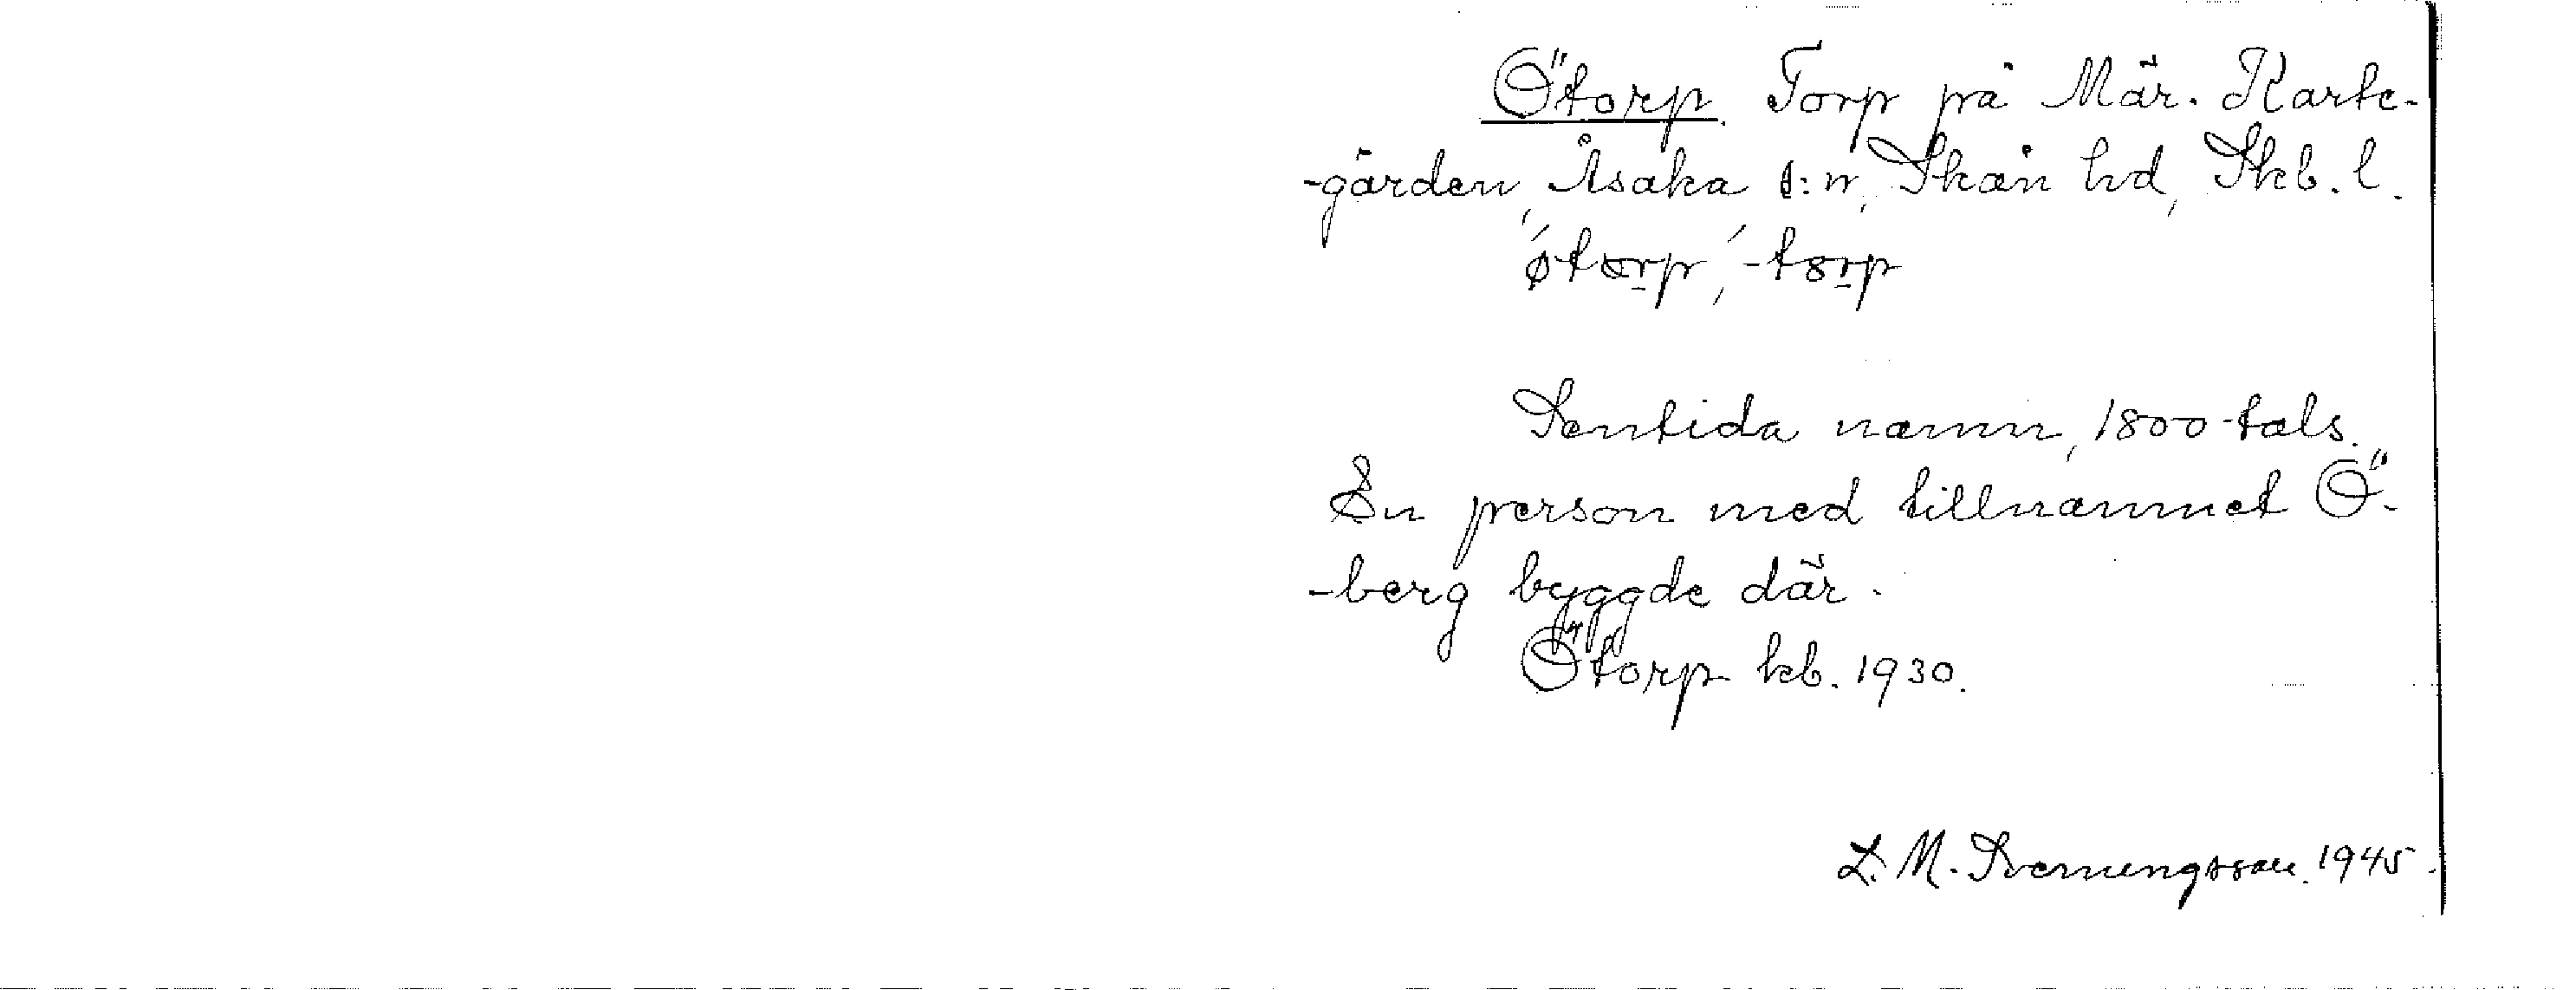 Ötorp. Torp på Mär. Karte-
-gården, Åsaka s:n, Skån hd, Skb. l.
´øtorp, ´-tɞrp
Sentida namn, 1800-tals.
En person med tillnamnet Ö-
-berg byggde där.
Ötorp kb. 1930.
L. M. Svenungsson. 1945.